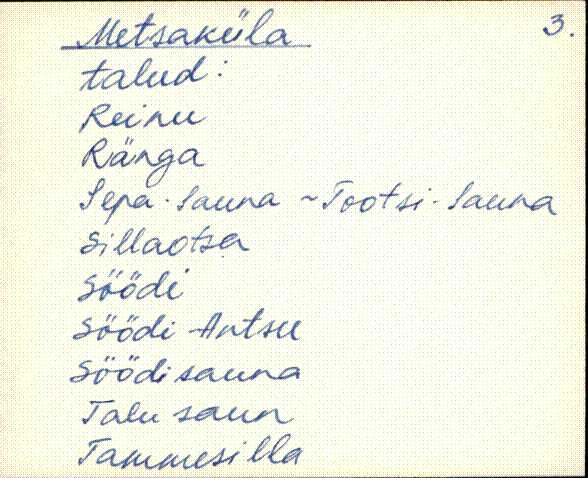 Metsaküla 3.
talud:
Reinu
Ränga
Sepa-Sauna ~ Tootsi-Sauna
Sillaotsa
Söödi
Söödi-Antsu
Söödisauna
Talu saun
Tammesilla